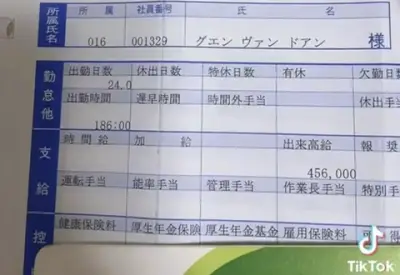 所属氏名 所属 社員番号 氏名
016 001329 グエン ヴァン ドアン 様
勤怠他 出勤日数 休出日数 特休日数 有休 欠勤日
24.0
出勤時間 遅早時間 時間外手当 休出手
186:00
支給 時間給 加給 出来高給 報奨
456,000
運転手当 能率手当 管理手当 作業長手当 特別手
控 健康保険料 厚生年金保険 厚生年金基金 雇用保険料
TikTok